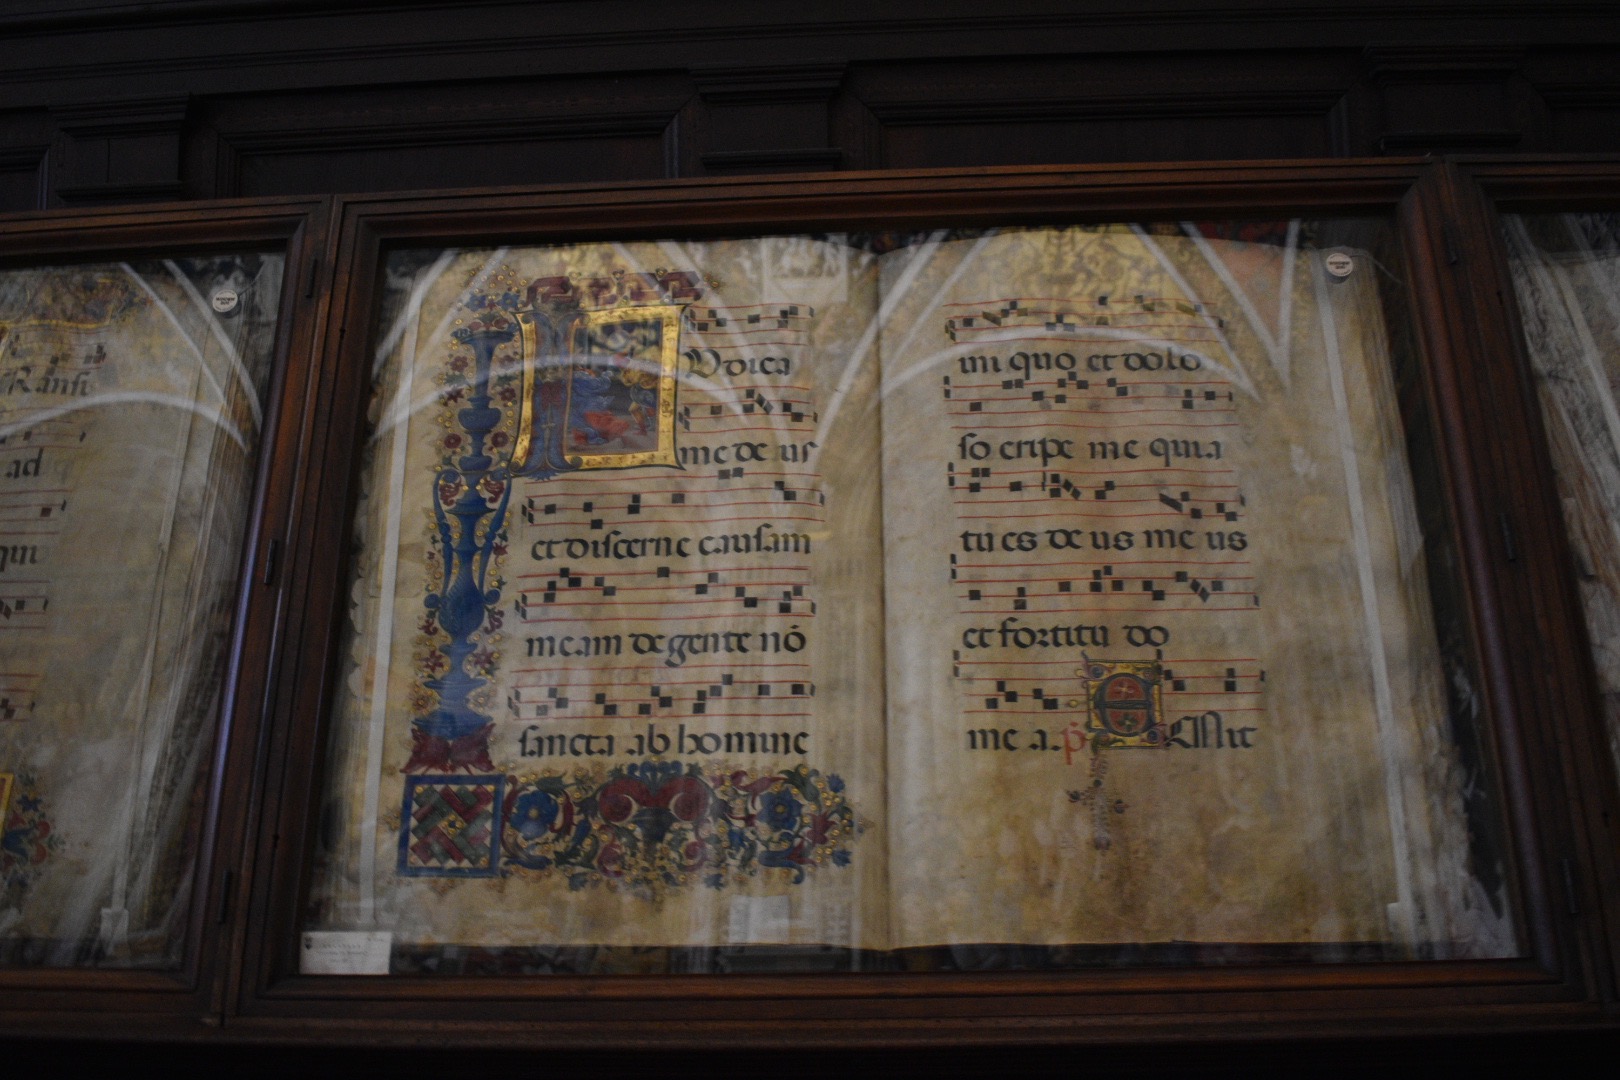 Ransi
ad
qui
IUdica
me de us
et discerne causam
meam de gente nō
sancta ab homine
ini quo et dolo
so eripe me quia
tu es de us me us
et fortitu do
me a. p̄ EMit